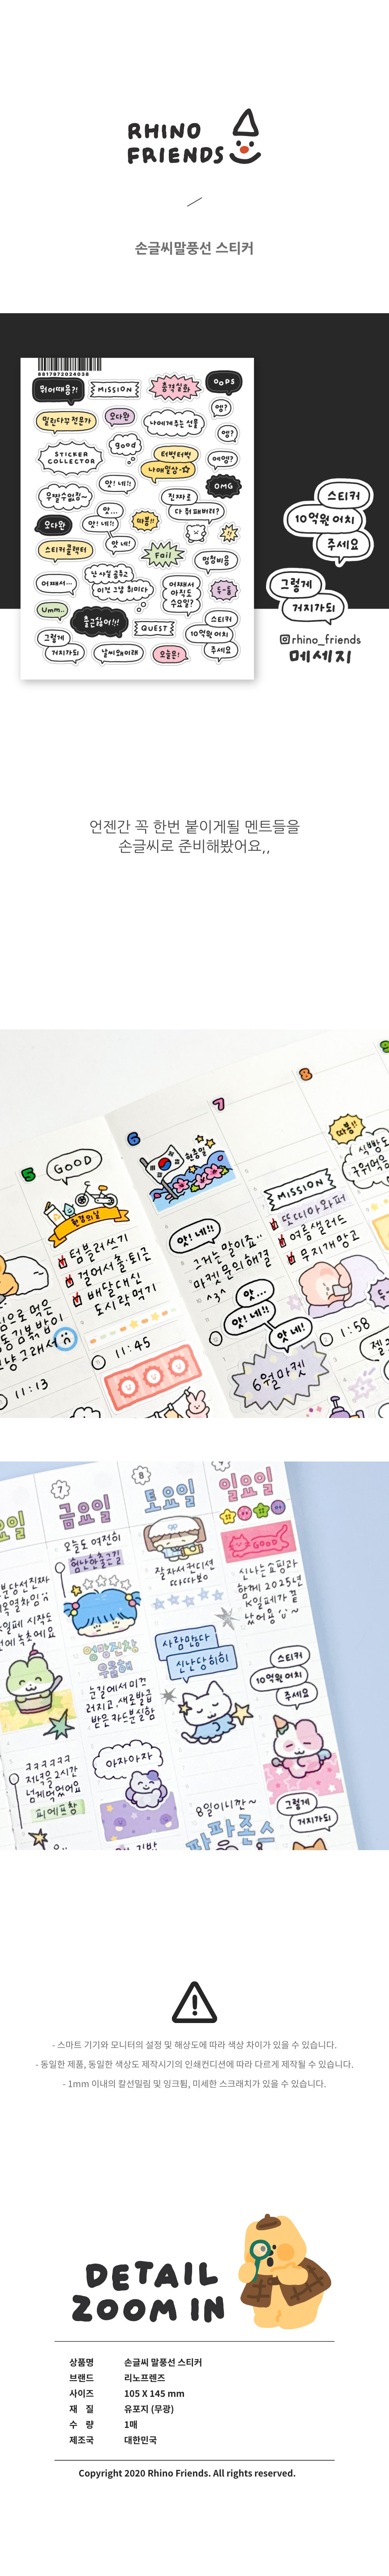 RHINO
FRIENDS
손글씨말풍선 스티커
8817972024038
뭐어때용?!
MISSION
충격실화
OOPS
밀린다꾸전문가
오다완
나에게주는 선물
엥?
엥?
STICKER
COLLECTOR
good
터벅터벅
나애일상
에엥?
우짤수없징~
앗! 네!!
진짜로
다 뜯어버려?
OMG
오다완
앗...
앗! 네!!
앗 네!
따봉!!
스티커콜렉터
Fail
멍청비용
어째서...
난 사실 굶주고
어째서
아직도
수요일?
두-둥
Umm..
출근싫어!!!
QUEST
스티커
10억원 어치
주세요
그렇게
거지가되
날씨왜이래
오늘은!
스티커
10억원 어치
주세요
그렇게
거지가되
rhino_friends
메세지
언젠간 꼭 한번 붙이게될 멘트들을
손글씨로 준비해봤어요,,
5
6
7
8
GOOD
환경의날
텀블러쓰기
걸어서출·퇴근
배달대신
도시락먹기
11:13
현충일
11:45
앗! 네!!
그거는 말이죠..
마켓 문의 해결
^3^
앗...
앗! 네!!
앗 네!
6월마켓
MISSION
또띠아와퍼
여름샐러드
무지개망고
1:58
따봉!!
7
8
금요일
토요일
일요일
오늘도 여전히
험난한출근길
엉망진창
우울해
눈길에서미끄
러지고, 새로발급
받은카드분실함
아자아자
잘자서컨디션
따따따봉
사람많다
신난당히히
8일이니깐~
GOOD
신나는쇼핑과
함께 2025년
K일페가 끝
났어요
스티커
10억원 어치
주세요
그렇게
거지가되
ㅋㅋㅋㅋㅋㅋ
저녁을2시간
넘게먹었어요
피에프창
- 스마트 기기와 모니터의 설정 및 해상도에 따라 색상 차이가 있을 수 있습니다.
- 동일한 제품, 동일한 색상도 제작시기의 인쇄컨디션에 따라 다르게 제작될 수 있습니다.
- 1mm 이내의 칼선밀림 및 잉크튐, 미세한 스크래치가 있을 수 있습니다.
DETAIL
ZOOM IN
상품명 손글씨 말풍선 스티커
브랜드 리노프렌즈
사이즈 105 X 145 mm
재 질 유포지 (무광)
수 량 1매
제조국 대한민국
Copyright 2020 Rhino Friends. All rights reserved.